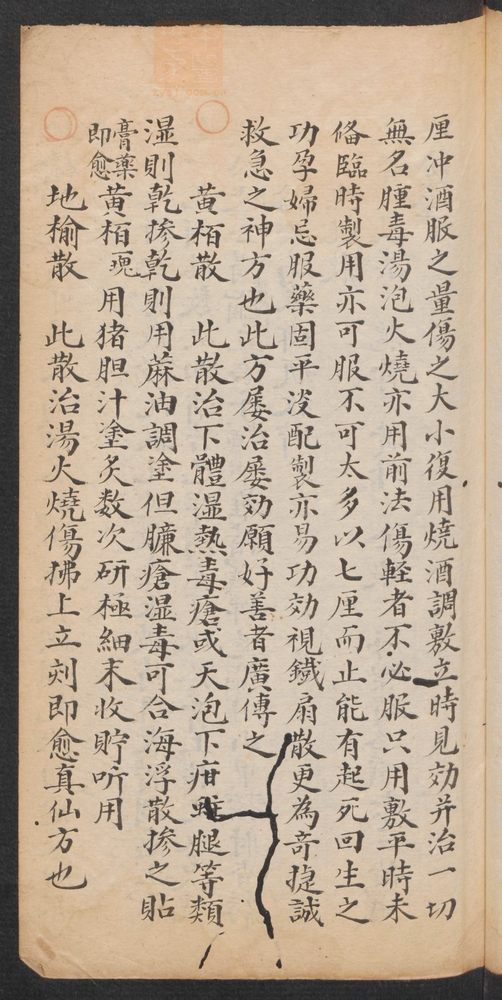 厘冲酒服之量傷之大小復用燒酒調敷立時見効并治一切
無名腫毒湯泡火燒亦用前法傷軽者不必服只用敷平時未
俻臨時製用亦可服不可太多以七厘而止能有起死回生之
功孕婦忌服藥固平淡配製亦易功効視鐵扇散更為奇捷誠
救急之神方也此方屡治屡効願好善者廣傳之
黄栢散 此散治下體湿熱毒瘡或天泡下疳蛀腿等類
湿則乾掺乾則用蔴油調塗但臁瘡湿毒可合海浮散掺之貼
膏藥即愈黄栢塊用猪胆汁塗炙数次研極細末收貯听用
地榆散 此散治湯火燒傷拂上立刻即愈真仙方也